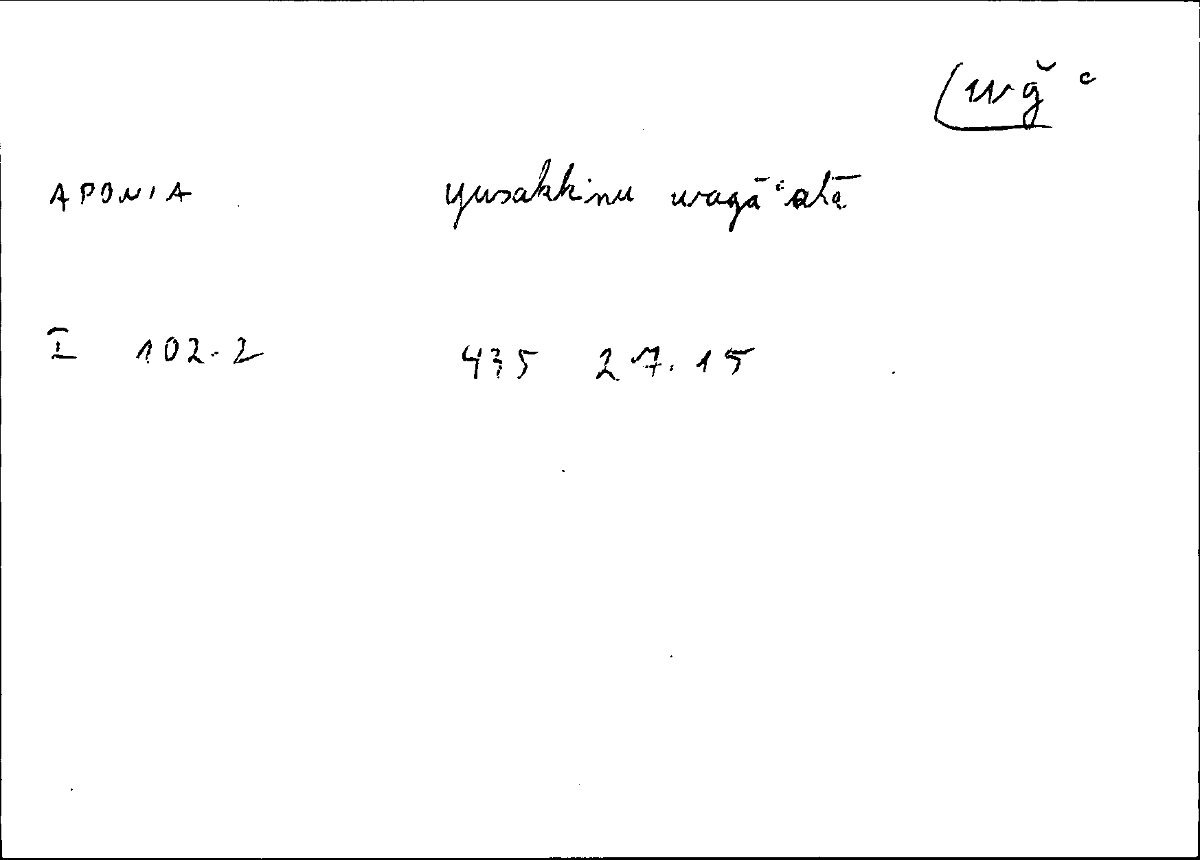 wğ ͨ
APONIA yusakkinu wagāʿahā
I 102.2 435 27.15